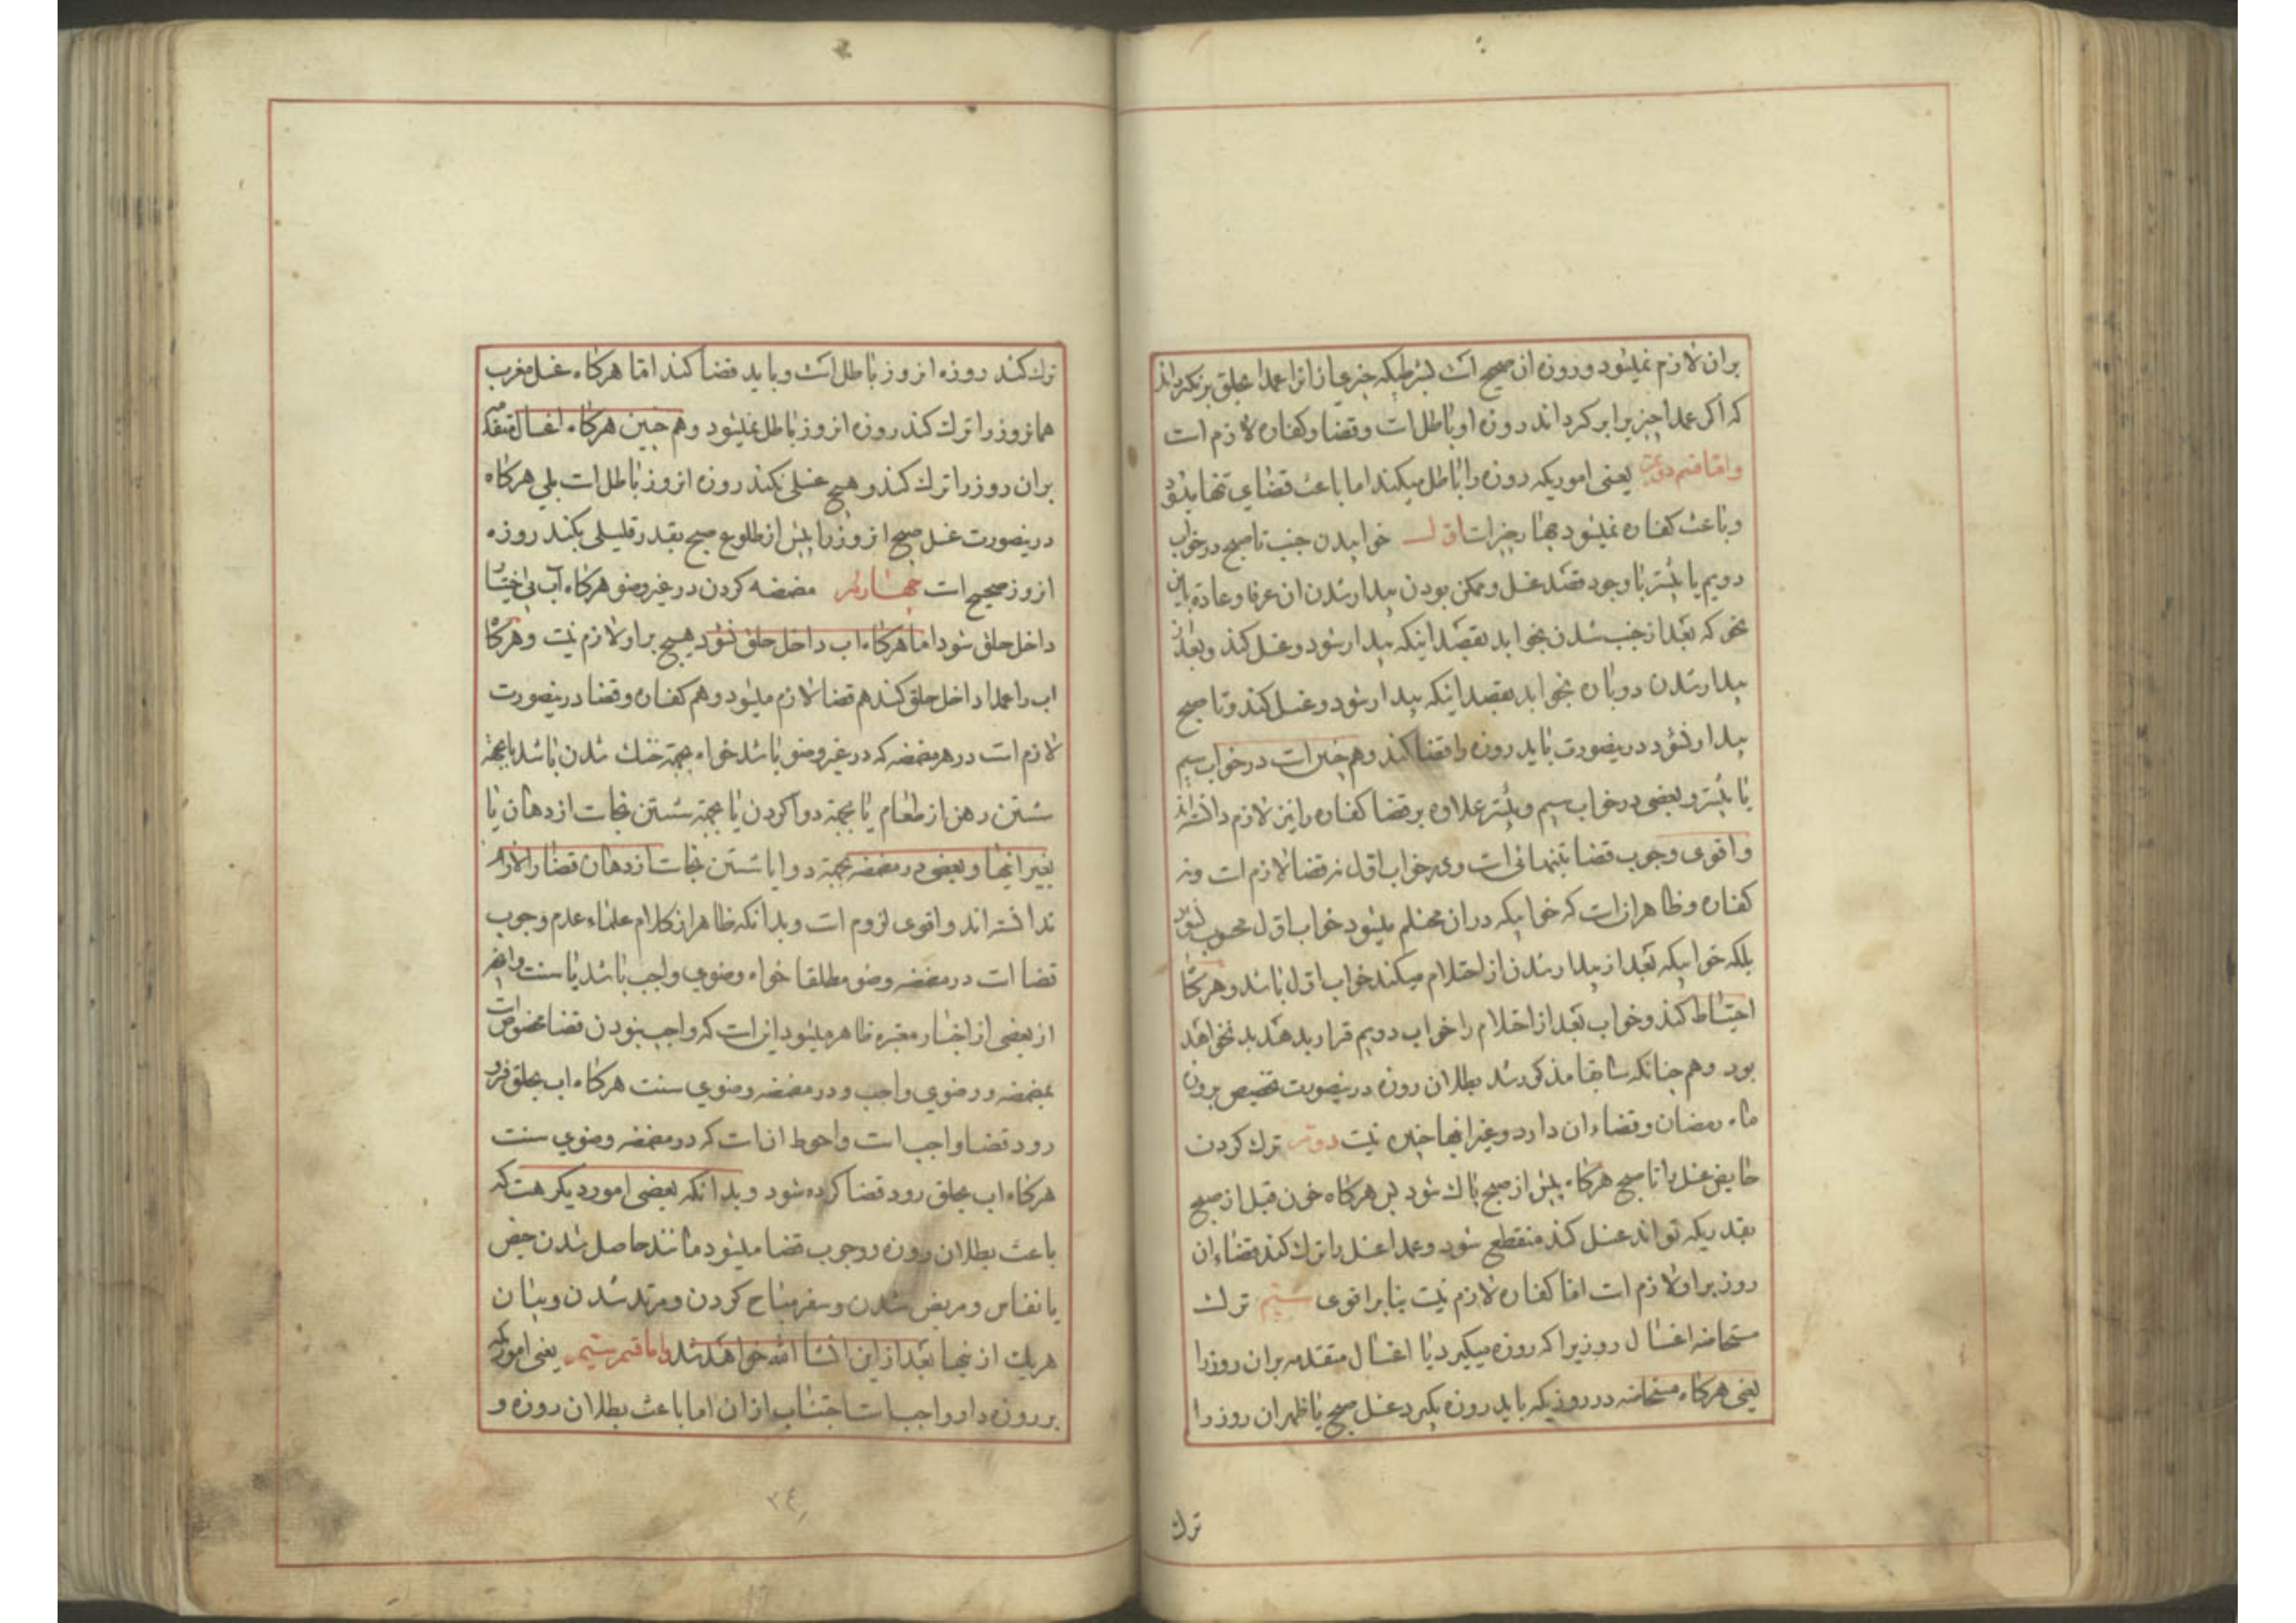 بران لازم نمیشود و روزه ان صحیح است بشرطیکه چیزی از انرا عمدا بحلق برنگرداند
که اگر عمدا چیزیرا برگرداند روزه او باطل است و قضا و کفاره لازم است
و اما قسم دویم یعنی اموریکه روزه را باطل میکند اما باعث قضای تنها میشود
و باعث کفاره نمیشود چهار چیز است اول خوابیدن جنب تا صبح در خواب
دویم یا بیشتر با وجود قصد غسل و ممکن بودن بیدار شدن ان عرفا و عادة باین
نحو که بعد از جنب شدن بخوابد بقصد اینکه بیدار شود و غسل کند و بعد از
بیدار شدن دوباره بخوابد بقصد اینکه بیدار شود و غسل کند و تا صبح
بیدار نشود درینصورت باید روزه را قضا کند و هم چنین است در خواب سیم
یا بیشتر و بعضی در خواب سیم و بیشتر علاوه بر قضا کفاره را نیز لازم دانسته اند
و اقوی وجوب قضا بتنهائی است و در خواب اول نه قضا لازم است و نه
کفاره و ظاهر انست که خوابیکه دران محتلم میشود خواب اول محسوب نشود
بلکه خوابیکه بعد از بیدار شدن از احتلام میکند خواب اول باشد و هرگاه
احتیاط کند و خواب بعد از احتلام را خواب دویم قرار بدهد بد نخواهد
بود و هم چنانکه سابقا مذکور شد بطلان روزه درینصورت تخصیص بروزه
ماه رمضان و قضاء ان دارد و غیر انها چنین نیست دویم ترک کردن
حایض غسل را تا صبح هرگاه پیش از صبح پاک شود پس هرگاه خون قبل از صبح
بقدریکه تواند غسل کند منقطع شود و عمدا غسل را ترک کند قضاء ان
روز بر او لازم است اما کفاره لازم نیست بنا بر اقوی سیم ترک
مستحاضه اغسال روزیرا که روزه میگیرد یا اغسال متقدمه بران روز را
یعنی هرگاه مستحاضه در روزیکه باید روزه بگیرد غسل صبح یا ظهر ان روز را
ترک
ترک کند روزه انروز باطل است و باید قضا کند اما هرگاه غسل مغرب
همانروز را ترک کند روزه انروز باطل نمیشود و هم چنین هرگاه اغسال متقدمه
بران روز را ترک کند و هیچ غسلی نکند روزه انروز باطل است بلی هرگاه
درینصورت غسل صبح انروز را پیش از طلوع صبح بقدر قلیلی بکند روزه
انروز صحیح است چهارم مضمضه کردن در غیر وضو هرگاه آب بی اختیار
داخل حلق شود اما هرگاه اب داخل حلق نشود هیچ بر او لازم نیست و هرگاه
اب را عمدا داخل حلق کند هم قضا لازم میشود و هم کفاره و قضا درینصورت
لازم است در هر مضمضه که در غیر وضو باشد خواه بجهة خنک شدن باشد یا بجهة
شستن دهن از طعام یا بجهة دوا کردن یا بجهة شستن نجاست از دهان یا
بغیر اینها و بعضی در مضمضه بجهة دوا یا شستن نجاست از دهان قضا را لازم
ندانسته اند و اقوی لزوم است و بدانکه ظاهر از کلام علماء عدم وجوب
قضا است در مضمضه وضو مطلقا خواه وضوی واجب باشد یا سنت و انچه
از بعضی از اخبار معتبره ظاهر میشود اینست که واجب نبودن قضا مخصوص است
بمضمضه در وضوی واجب و در مضمضه وضوی سنت هرگاه اب بحلق فرو
رود قضا واجب است و احوط انست که در مضمضه وضوی سنت
هرگاه اب بحلق رود قضا کرده شود و بدانکه بعضی امور دیگر هست که
باعث بطلان روزه و وجوب قضا میشود مانند حاصل شدن حیض
یا نفاس و مریض شدن و سفر مباح کردن و مرتد شدن و بیان
هریک ازینها بعد ازین انشا الله خواهد شد و اما قسم سیم یعنی اموریکه
بر روزه دار واجب است اجتناب از ان اما باعث بطلان روزه و
۳۴